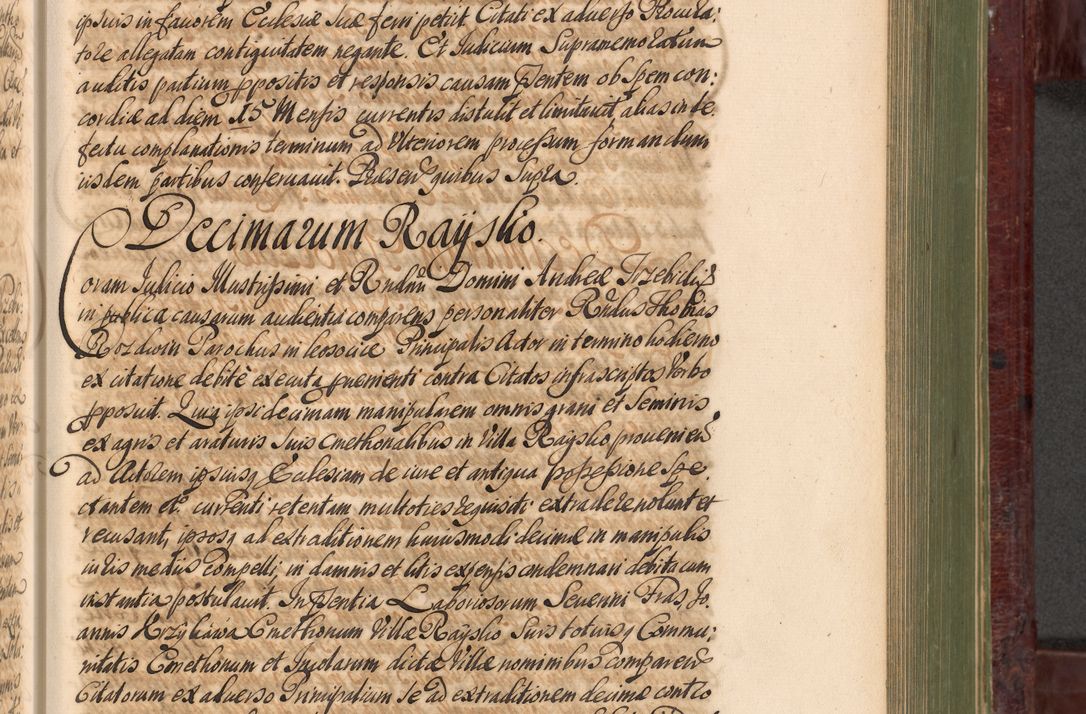 ipsius in favorem Ecclesiæ suæ fieri petiit Citati ex adverso Procura-
tore allegatam contiguitatem negante. Et Judicium Supramemoratum
auditis partium ppositis et responsis causam psentem ob spem con:
cordiæ ad diem 15 Mensis currentis distulit et limitavit alias in de
fectu complanationis terminum ad Ulteriorem processum formandum
iisdem partibus conservavit. Præsen quibus Supra.
Decimarum Rayſko.
Coram Judicio Illustrissimi et Rndmi Domini Andreæ Trzebicki
in publica causarum audientia comparens personaliter Rndus Thomas
Rozdwin Parochus in leosocice Principalis Actor in termino hodierno
ex citatione debitè executa pvenienti contra Citatos infrascriptos Verbo
pposuit. Quia ipsi decimam manipularem omnis grani et Seminis
ex agris et araturis suis Cmethonalibus in Villa Raysko provenien
ad Actorem ipsiusq Ecclesiam de iure et antiqua possessione spe
ctantem et currenti retentam multoties requisiti extradere nolunt et
recusant, ipsosq ad extraditionem huiusmodi decimæ in manipulis
iuris mediis compelli, in damnis et litis expensis condemnari debita cum
instantia postulavit. In psentia Laboriosorum Severini Fras, Jo
annis Krzykawa Cmethonum Villæ Raysko Suis totiusq Commu:
nitatis Cmethonum et Incolarum dictæ Villæ nominibus comparen
Citatorum ex adverso Principalium se ad extraditionem decimæ contro